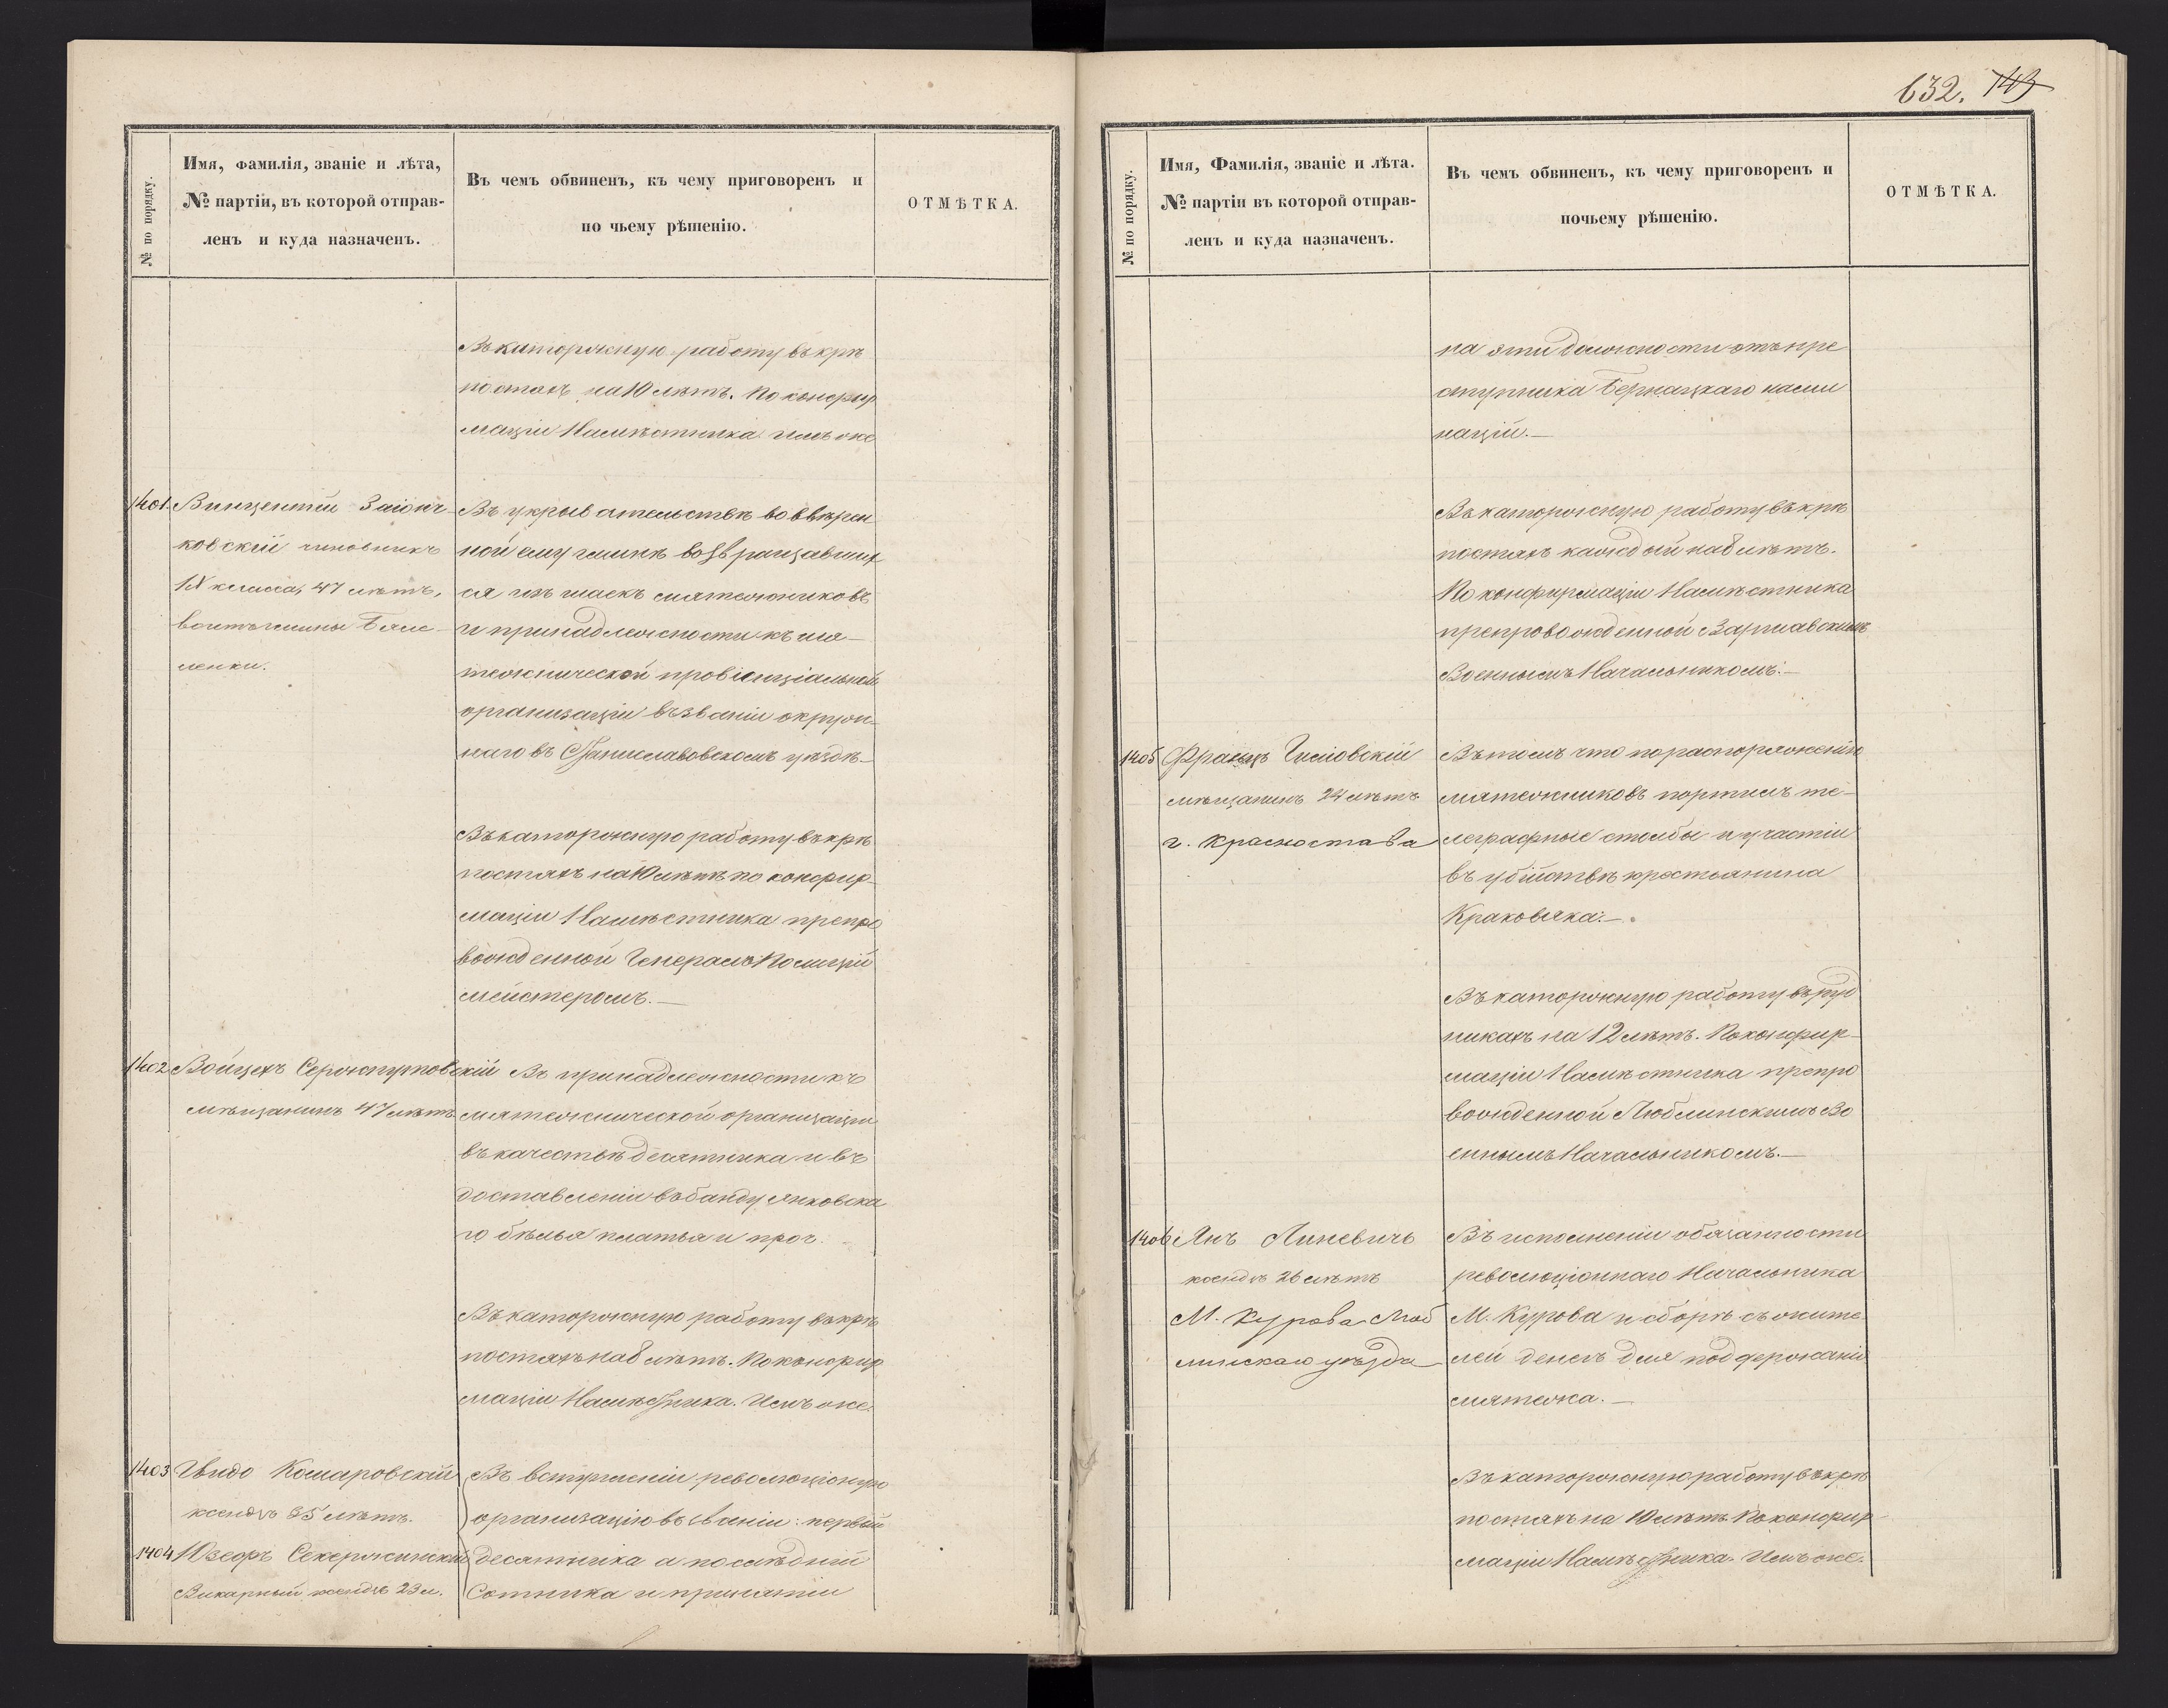 632. 149
№ по порядку.
Имя, фамилія, званіе и лѣта,
№ партіи, въ которой отправ-
ленъ и куда назначенъ.
Въ чемъ обвиненъ, къ чему приговоренъ и
по чьему рѣшенію.
ОТМѢТКА.
Въ каторжную работу въ крѣ
постахъ на 10 лѣтъ. По конфир
маціи Намѣстника имъ же
1401. Винцентій Заіонч-
ковскій чиновникъ
IX класса, 47 лѣтъ,
войтъ гмины
ленки.
Въ укрывательствѣ во ввѣрен
ной ему гминѣ возвращавших
ся изъ шаекъ мятежниковъ
и принадлежности къ мя-
тежнической провинціальной
организаціи въ званіи окруж-
наго въ Станиславовскомъ уѣздѣ.-
Въ каторжную работу въ крѣ
постяхъ на 10 лѣтъ по конфир-
маціи Намѣстника препро
вожденной Генералъ Полицій
мейстеромъ.-
1402 Войцехъ Сержпутовскій
мѣщанинъ 47 лѣтъ
Въ принадлежности къ
мятежнической организаціи
въ качествѣ десятника и въ
доставленіи въ банду Янковска
го бѣлья платья и проч.
Въ каторжную работу въ крѣ
постяхъ на 8 лѣтъ. По конфир
маціи Намѣстника. Имъ же.
1403 Гвидо Комаровскій
ксендзъ 35 лѣтъ.
1404 Юзефъ Секержинскій
Викарный ксендзъ 23 л.
Въ вступленіи революціонную
организацію въ званіи: первый
десятника а послѣдній
Сотника и принятіи
№ по порядку.
Имя, Фамилія, званіе и лѣта.
№ партіи въ которой отправ-
ленъ и куда назначенъ.
Въ чемъ обвиненъ, къ чему приговоренъ и
почьему рѣшенію.
ОТМѢТКА.
на эти должности отъ пре
ступника Бернацкаго номи
націй.-
Въ каторжную работу въ крѣ
постяхъ каждый на 8 лѣтъ.
По конфирмаціи Намѣстника
препровожденной Варшавскимъ
Военнымъ Начальникомъ.-
1405 Францъ
мѣщанинъ 24 лѣтъ
г. Красностава
Въ томъ что по распоряженію
мятежниковъ портилъ те-
леграфные столбы и участіи
въ убійствѣ крестьянина
Краковяка.-
Въ каторжную работу въ руд
никахъ на 12 лѣтъ. По конфир-
маціи Намѣстника препро
вожденной Люблинскимъ Во
еннымъ Начальникомъ.-
1406 Янъ Линевичъ
ксендзъ 26 лѣтъ
М. Курова Люб
линскаго уѣзда
Въ исполненіи обязанности
революціоннаго Начальника
М. Курова и сборѣ съ жите
лей денегъ для поддержанія
мятежа.-
Въ каторжную работу въ крѣ
постяхъ на 10 лѣтъ По конфир-
маціи Намѣстника. Имъ же.